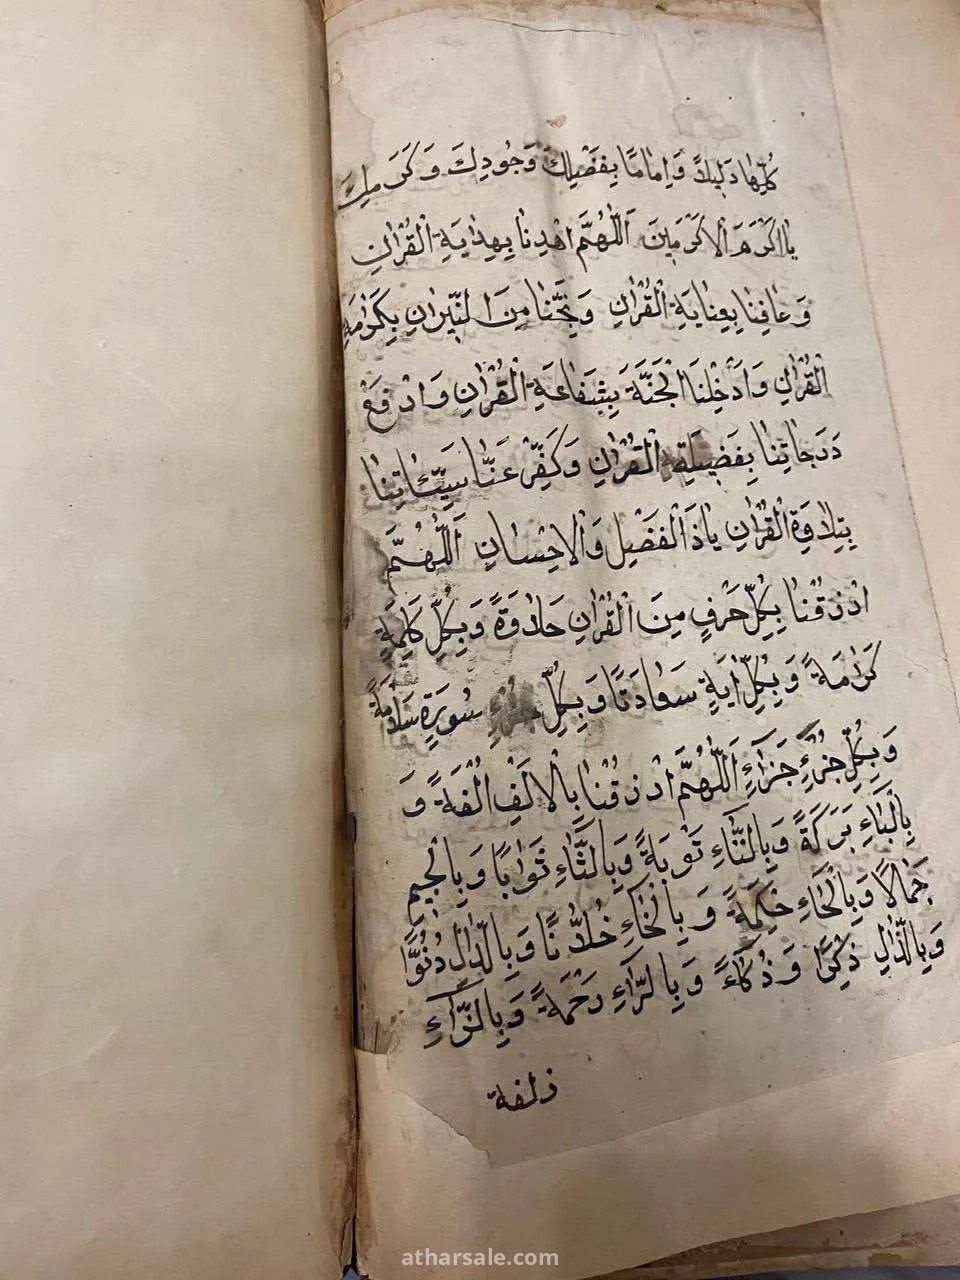 كُلِّهَا دَلِيلًا وَاِمَامًا بِفَضْلِكَ وَجُودِكَ وَكَرَمِكَ
يَا اَكْرَمَ الْاَكْرَمِينَ اَللّٰهُمَّ اهْدِنَا بِهِدَايَةِ الْقُرْاٰنِ
وَعَافِنَا بِعِنَايَةِ الْقُرْاٰنِ وَنَجِّنَا مِنَ النِّيرَانِ بِكَرَامَةِ
الْقُرْاٰنِ وَاَدْخِلْنَا الْجَنَّةَ بِشَفَاعَةِ الْقُرْاٰنِ وَارْفَعْ
دَرَجَاتِنَا بِفَضِيلَةِ الْقُرْاٰنِ وَكَفِّرْ عَنَّا سَيِّـَٔاتِنَا
بِتِلَاوَةِ الْقُرْاٰنِ يَاذَا الْفَضْلِ وَالْاِحْسَانِ اَللّٰهُمَّ
ارْزُقْنَا بِكُلِّ حَرْفٍ مِنَ الْقُرْاٰنِ حَلَاوَةً وَبِكُلِّ كَلِمَةٍ
كَرَامَةً وَبِكُلِّ اٰيَةٍ سَعَادَتًا وَبِكُلِّ سُورَةٍ سَلَامَةً
وَبِكُلِّ جُزْءٍ جَزَاءً اَللّٰهُمَّ ارْزُقْنَا بِالْاَلِفِ اُلْفَةً وَ
بِالْبَاءِ بَرَكَةً وَبِالتَّاءِ تَوْبَةً وَبِالثَّاءِ ثَوَابًا وَبِالْجِيمِ
جَمَالًا وَبِالْحَاءِ حِكْمَةً وَبِالْخَاءِ خُلَّانًا وَبِالدَّالِ دُنُوًّا
وَبِالذَّالِ ذِكْرًا وَذُكَاءً وَبِالرَّاءِ رَحْمَةً وَبِالزَّاءِ
زلفة
atharsale.com